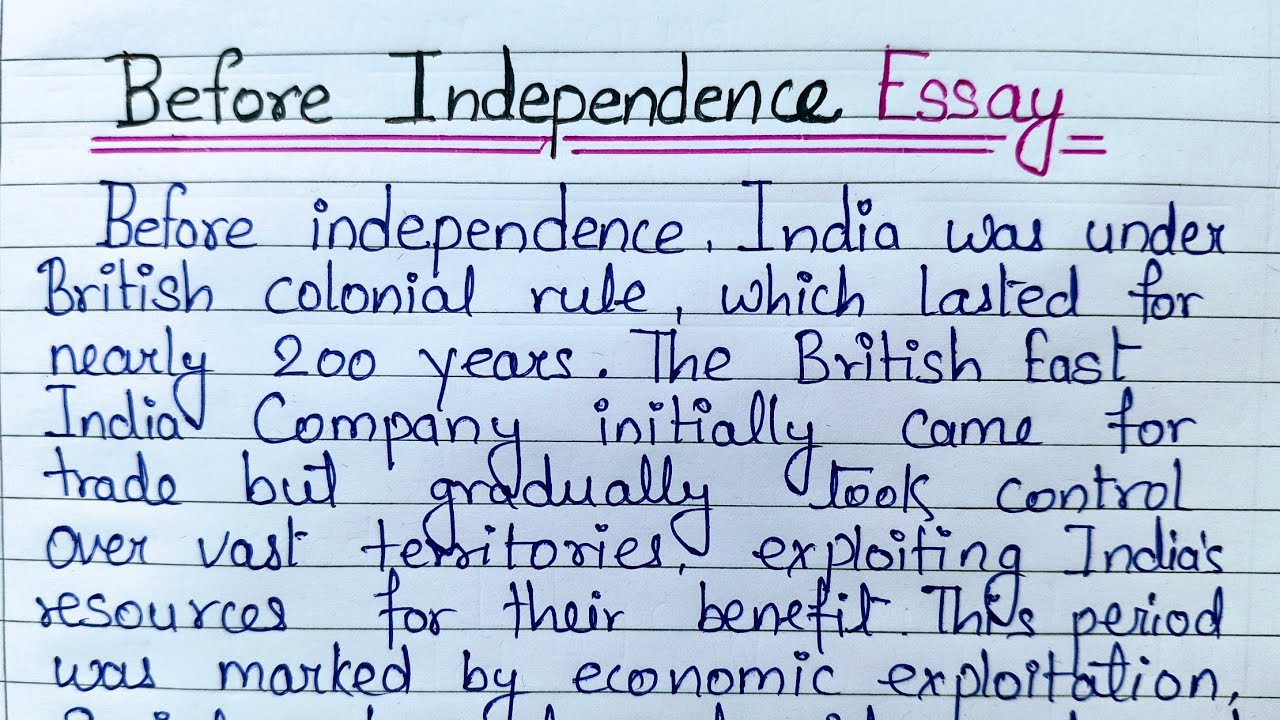 Before Independence Essay
Before independence, India was under
British colonial rule, which lasted for
nearly 200 years. The British East
India Company initially came for
trade but gradually took control
over vast territories, exploiting India's
resources for their benefit. This period
was marked by economic exploitation,